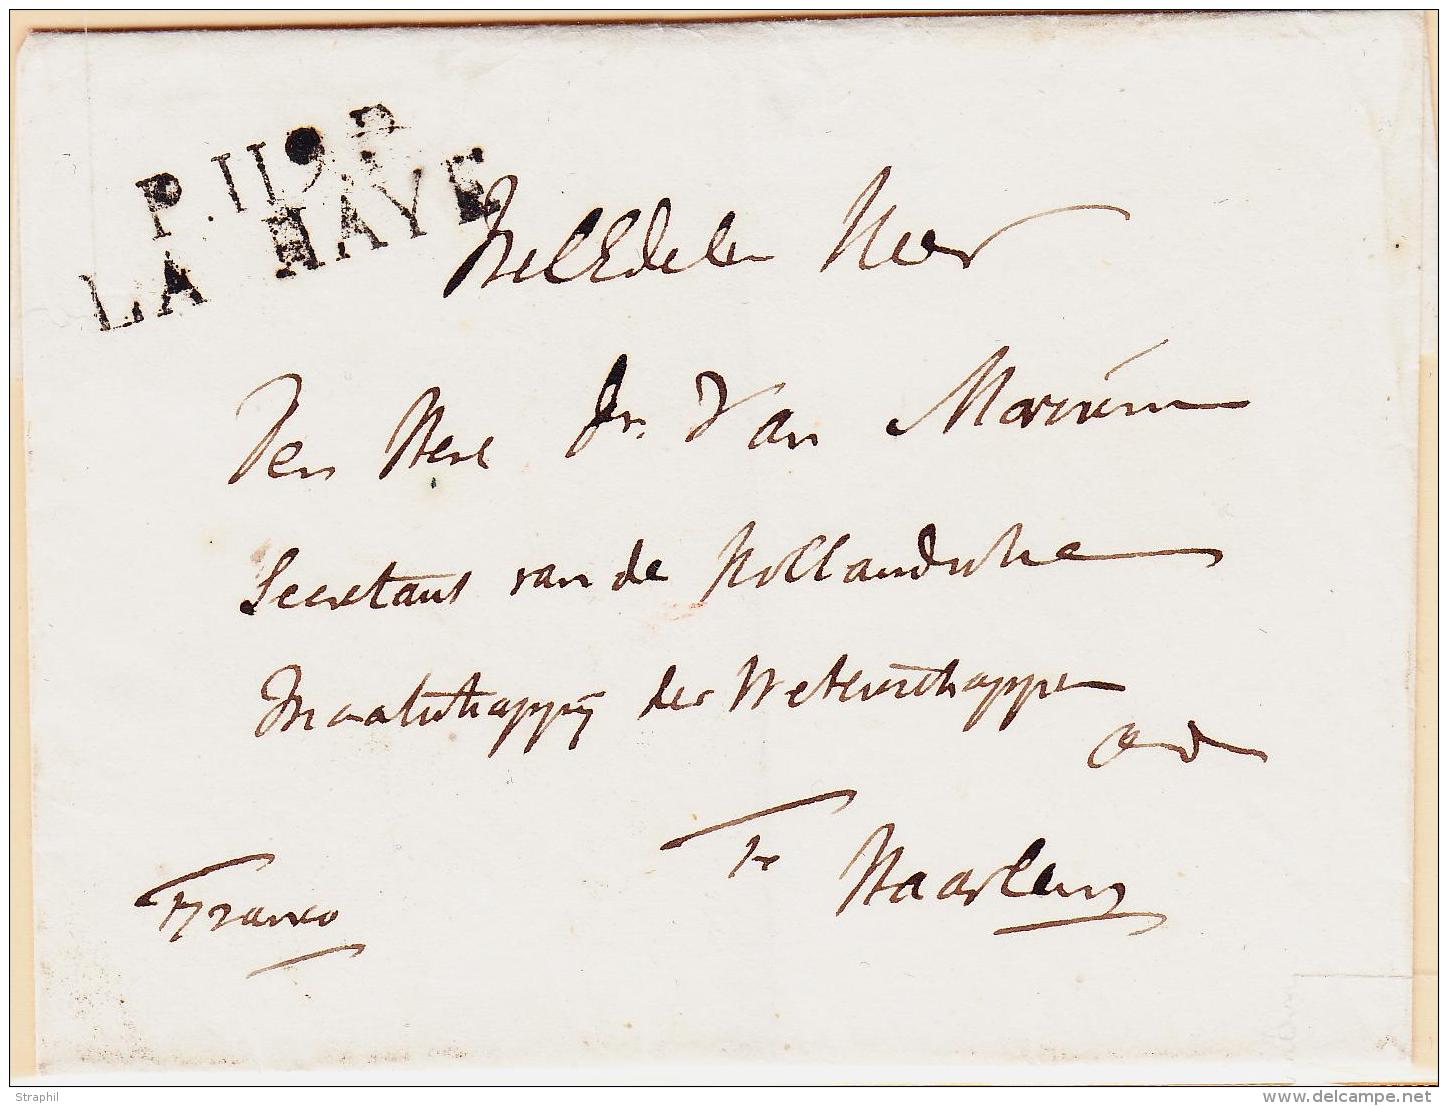 P.119.P.
LA HAYE
WelEdelen Heer
Den Heer Dr. Van Marum
Secretaris van de Hollandsche
Maatschappÿ der Wetenschappen
Te Haarlem
Franco
Straphil
delcampe.net